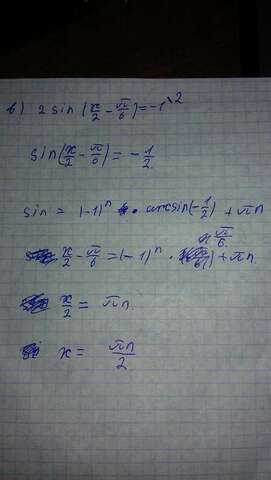 в) 2 sin (x/2 - π/6) = -1 \2
sin(x/2 - π/6) = - 1/2
sin = (-1)ⁿ · arcsin(-1/2) + πn
x/2 - π/6 = (-1)ⁿ · π/6 + πn
x/2 = πn
x = πn/2